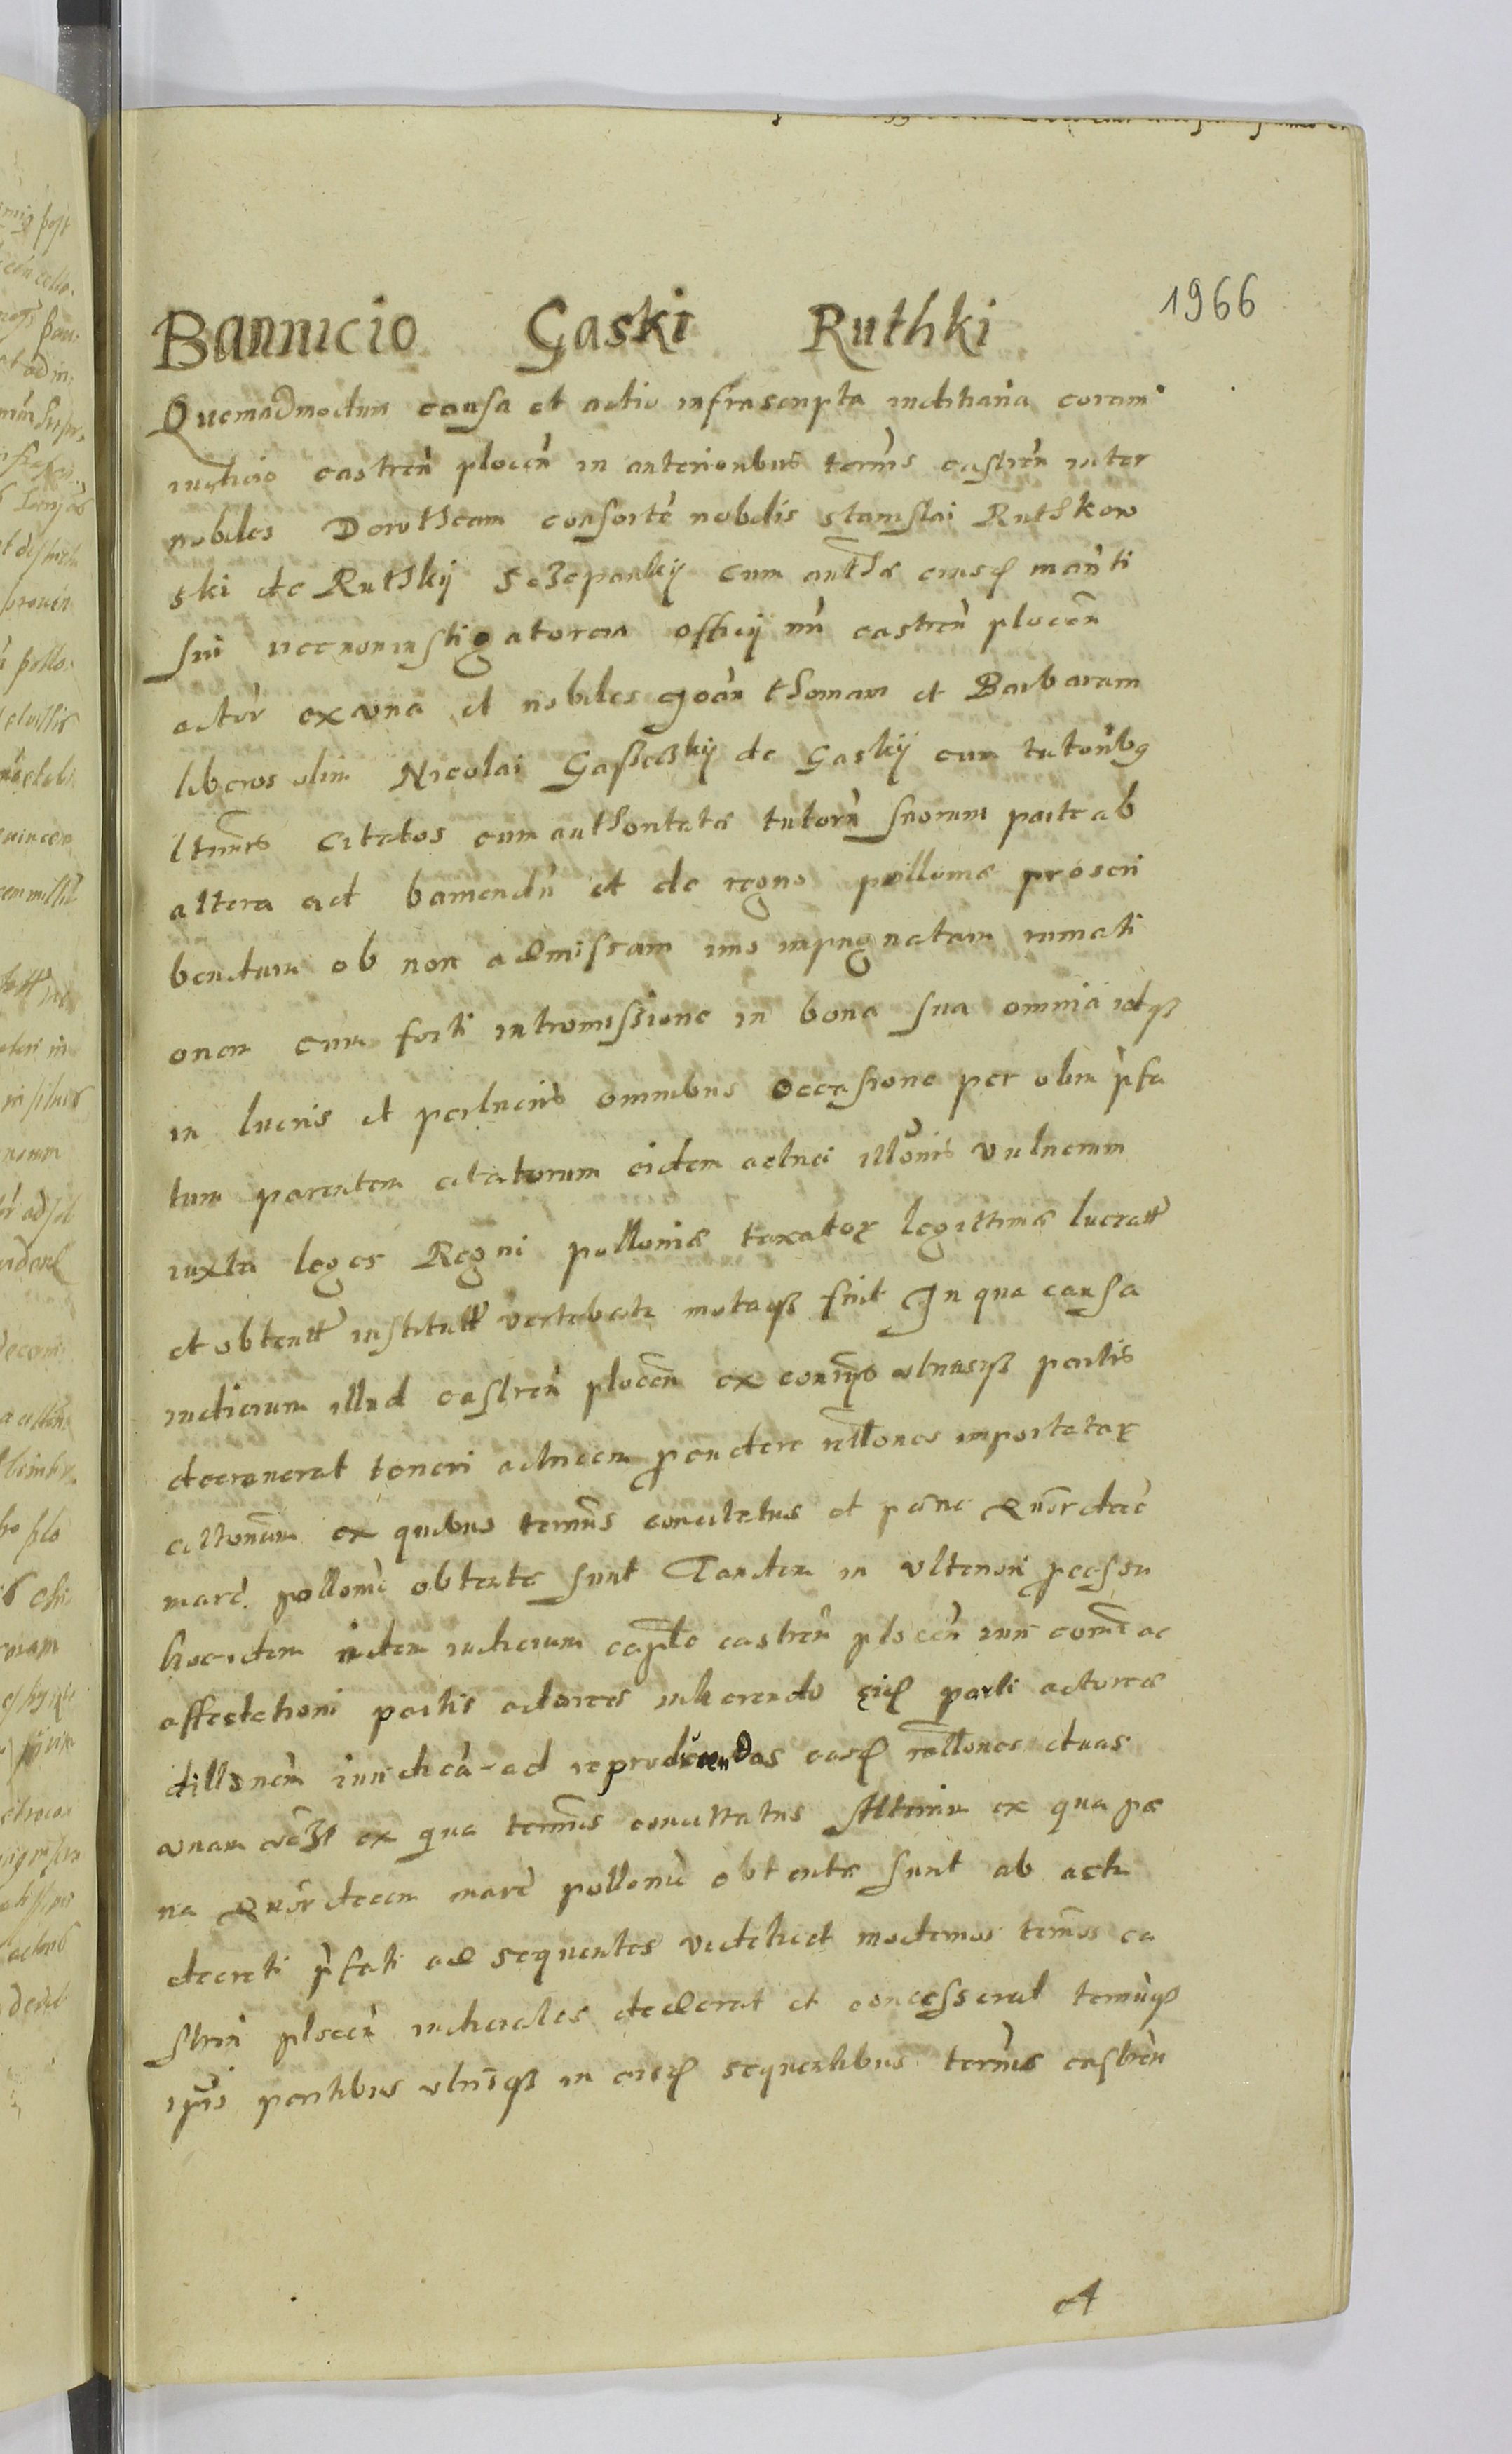 1966
Bannicio Gaski Ruthki
Quemadmodum causa et actio infrascripta iudiciaria coram
iudicio castren plocen in anterioribus termis castren inter
nobiles Dorotheam consorte nobilis Stanislai Ruthkow
ski de Ruthkij Sczepankij cum authe eiusd mariti
sui necnon instigatorem officij nri castren plocen
actor ex una et nobiles Joan thomam et Barbaram
liberos olim Nicolai Gasseczkij de Gaskij cum tutoribq
ltimis citatos cum authoritate tutoru suorum parte ab
altera ad baniendu et de regno pollonie proscri
bendum ob non admissam imo inpugnatam rumati
onem cum forti intromissione in bona sua omnia idqz
in lucris et perlucris omnibus occasione per olim pfa
tum parentem citatorum eidem actrici illonis vulnerum
iuxta leges Regni pollonie taxator legittime lucratt
et obtentt institutt vertebatr motaqz fuit In qua causa
iudicium illud castren plocen ex utriusqz partis
decreverat teneri actricem pandere rationes importator
citationum ex quibus termus concitatus et pene quordec
marc pollonic obtente sunt Tandem in ulteriori pcessu
hocidem idem iudicium capte castren plocen iuri comi ac
affectationi partis actoree inherendo eid parti actoree
dillonem iuridica ad reproducendas easd rationes duas
unam ex qua termus concitatus Alteram ex qua pe
na quordecem marc pollonic obtente sunt ab actu
decreti pfati ad sequentes videlicet modernos termos ca
stren plocen iudiciales dederat et concesserat termuqz
ipsis partibus utrisqz in eisd sequentibus termis castren
A